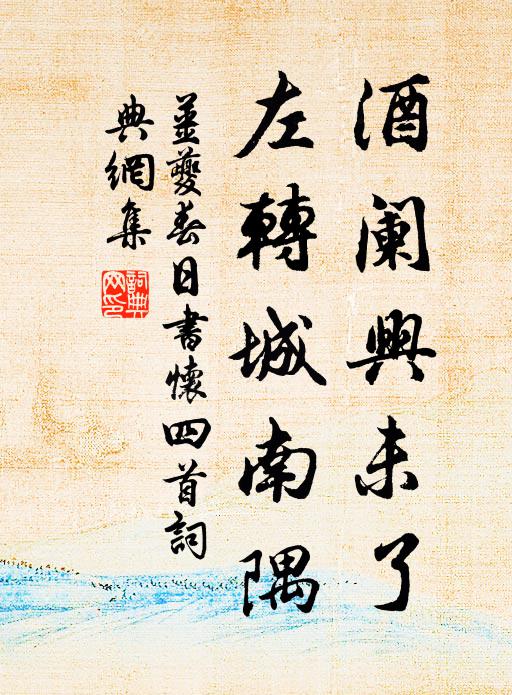 酒阑興未了
左轉城南隅
姜夔春日書懷四首詞
典網集
詞典
网印